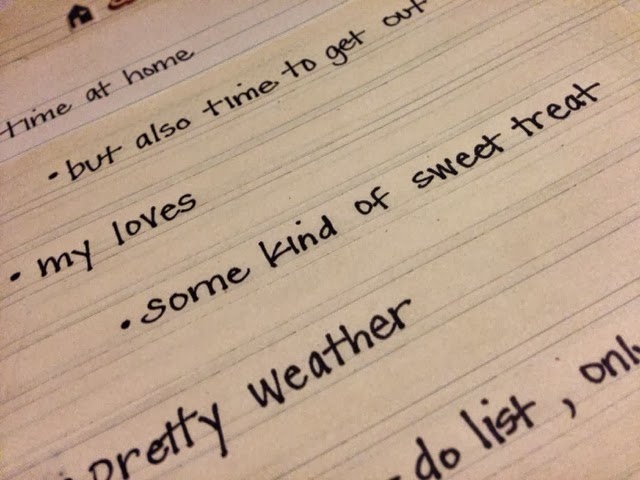 time at home
• but also time to get out
• my loves
• some kind of sweet treat
pretty weather
-do list, only